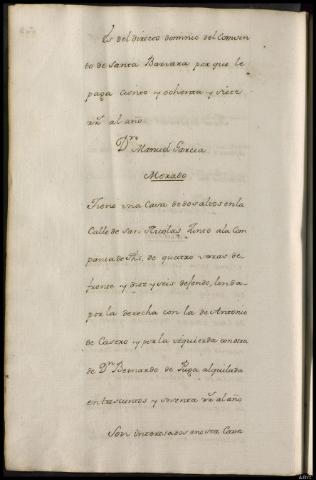 Es del directo dominio del Comven
to de Santa Barvara por que le
paga ciento y ochenta y siete
rr.s al año
Dn. Manuel Garcia
Merado
Tiene una Casa de dos altos en la
Calle de San Nicolas, Junto a la Com
pania de Jhs, de quatro varas de
frente y diez y seis de fondo, linda
por la derecha con la de Antonio
de Castro y por la izquierda con otra
de Dn. Bernardo de Puga alquilada
en trescientos y sesenta rr.s al año
Son interesados en esta Casa